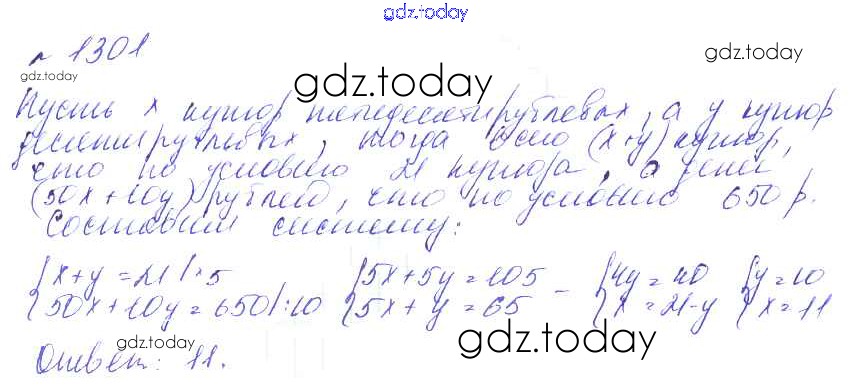 gdz.today
№ 1301
gdz.today
gdz.today
Пусть x купюр пятидесятирублевых, а y купюр
десятирублевых, тогда всего (x+y) купюр,
что по условию 21 купюра, а денег
(50x+10y) рублей, что по условию 650 р.
Составим систему:
{x+y=21 |·5 {5x+5y=105 – {4y=40 {y=10
{50x+10y=650 |:10 {5x+y=65 {x=21-y {x=11
gdz.today
gdz.today
Ответ: 11.